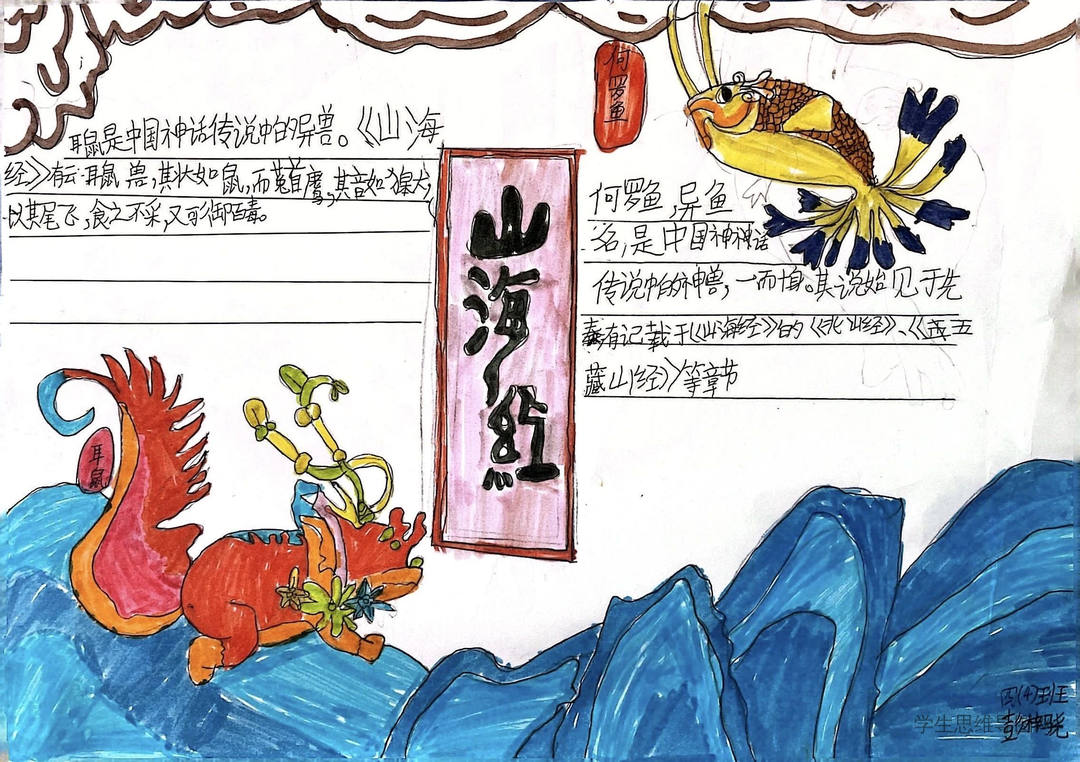 耳鼠是中国神话传说中的异兽。《山海
经》有云:耳鼠兽,其状如鼠,而菟首麋,其音如獆犬,
以其尾飞,食之不采,又可御百毒。
耳鼠
山海經
何罗鱼
何罗鱼,异鱼
名,是中国神神话
传说中的神兽,一首而十身。其说始见于先
秦有记载于《山海经》的《北山经》、《五
藏山经》等章节
四(4)班
学生思维